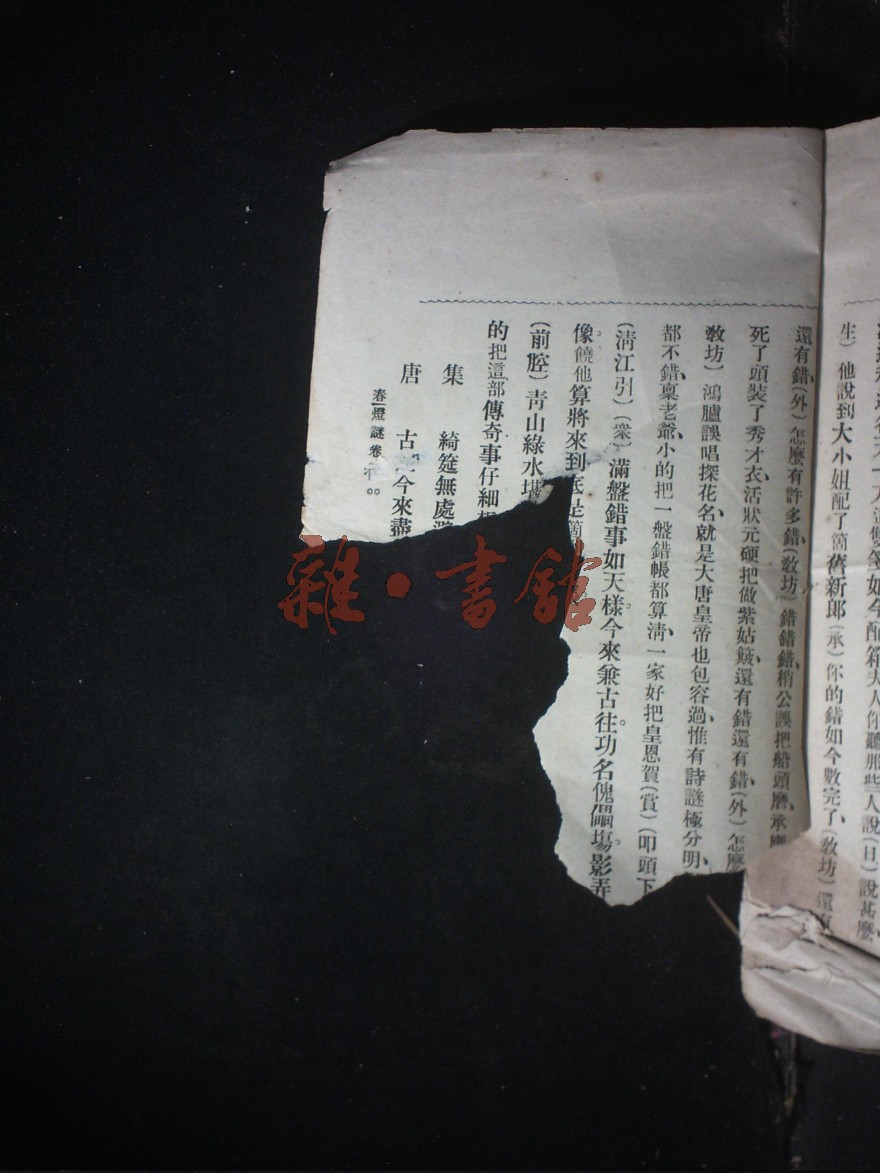 生）他說到大小姐配了箇舊新郎（承）你的錯如今數完了（敎坊）還有
還有錯（外）怎麼有許多錯（敎坊）錯錯錯梢公誤把船頭磨承
死了頭裝了秀才衣活狀元硬把做紫姑餱還有錯還有錯（外）怎麼
敎坊）鴻臚誤唱探花名就是大唐皇帝也包容過惟有詩謎極分明
都不錯稟老爺小的把一盤錯帳都算淸一家好把皇恩賀（賞）（叩頭下
（淸江引）（衆）滿盤錯事如天樣今來兼古往功名傀儡場影弄
像饒他算將來到底是箇
（前腔）靑山綠水
的把這部傳奇事仔細
集 綺筵無處
唐 古 今來盡
春燈謎卷
雜·書館